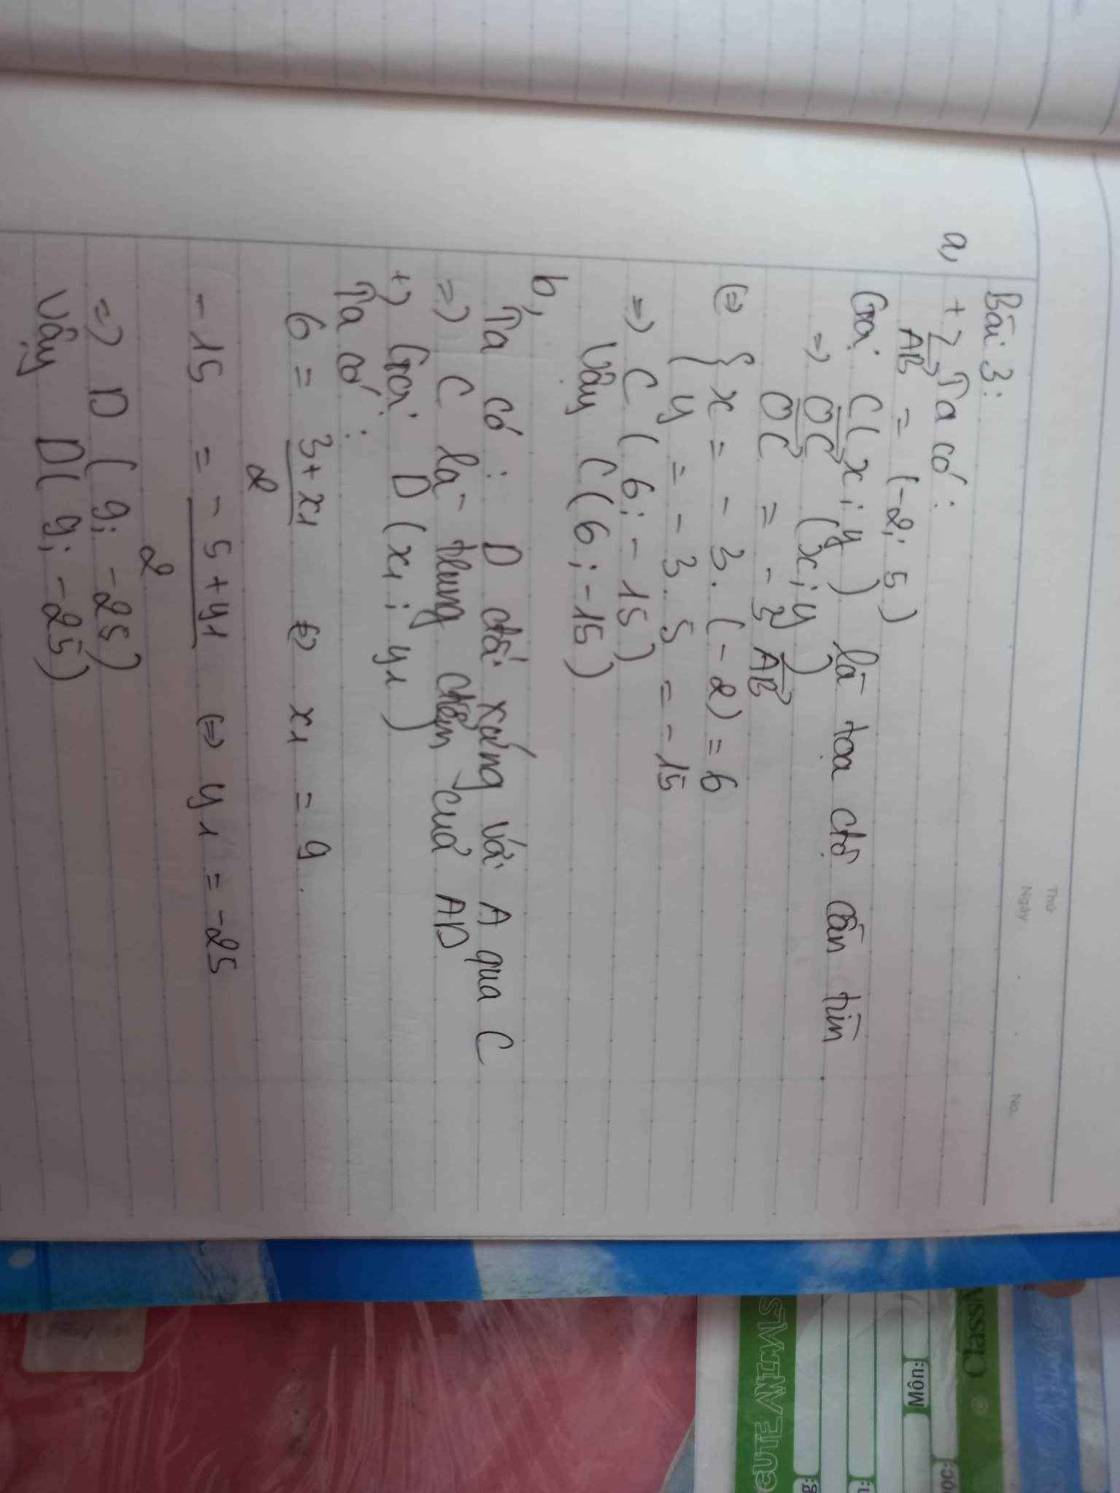 Thứ
Ngày . . No.
Bài 3:
a,
+) Ta có:
AB = (-2; 5)
Gọi C(x; y) là tọa độ cần tìm
=> OC (x; y)
OC = -3 AB
<=> { x = -3.(-2) = 6
y = -3.5 = -15
=> C (6; -15)
Vậy C(6; -15)
b,
Ta có: D đối xứng với A qua C
=> C là trung điểm của AD
+) Gọi D (x1; y1)
Ta có:
6 = 3+x1 / 2 <=> x1 = 9
-15 = -5+y1 / 2 <=> y1 = -25
=> D (9; -25)
Vậy D(9; -25)
Classm
Môn:
CUTE VENIMS